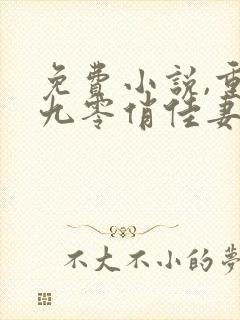 免費小說,重
九零俏佳妻
不大不小的夢